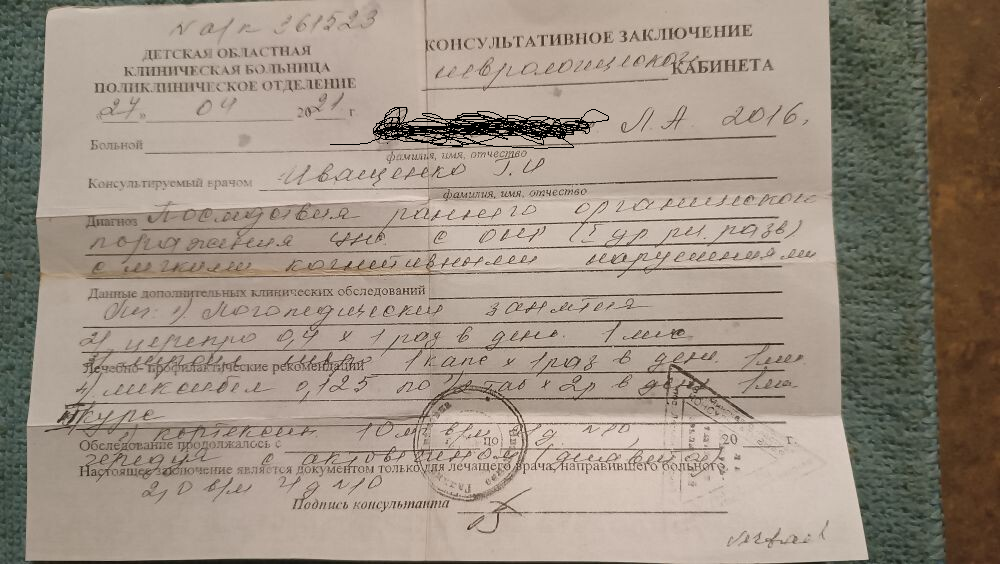 N а/к 361523
ДЕТСКАЯ ОБЛАСТНАЯ
КЛИНИЧЕСКАЯ БОЛЬНИЦА
ПОЛИКЛИНИЧЕСКОЕ ОТДЕЛЕНИЕ
«27» 04 2021 г.
КОНСУЛЬТАТИВНОЕ ЗАКЛЮЧЕНИЕ
неврологического КАБИНЕТА
Больной Л.А. 2016,
фамилия, имя, отчество
Консультируемый врачом Иващенко Г.И
фамилия, имя, отчество
Диагноз Последствия раннего органического
поражения цнс с онр (I ур рч. разв)
с легкими когнитивными нарушениями
Данные дополнительных клинических обследований
1) Логопедические занятия
2) церепро 0,4 x 1 раз в день. 1 мес
Лечебно-профилактические рекомендации 1 капс x 1 раз в день. 1 мес
4) 0,125 по таб x 2р в день 1 мес
курс
кортексин 10 мг в/м N10,
Обследование продолжалось с по 20 г.
чередуя с актовегином
Настоящее заключение является документом только для лечащего врача, направившего больного
2,0 в/м ч/д N10
Подпись консультанта